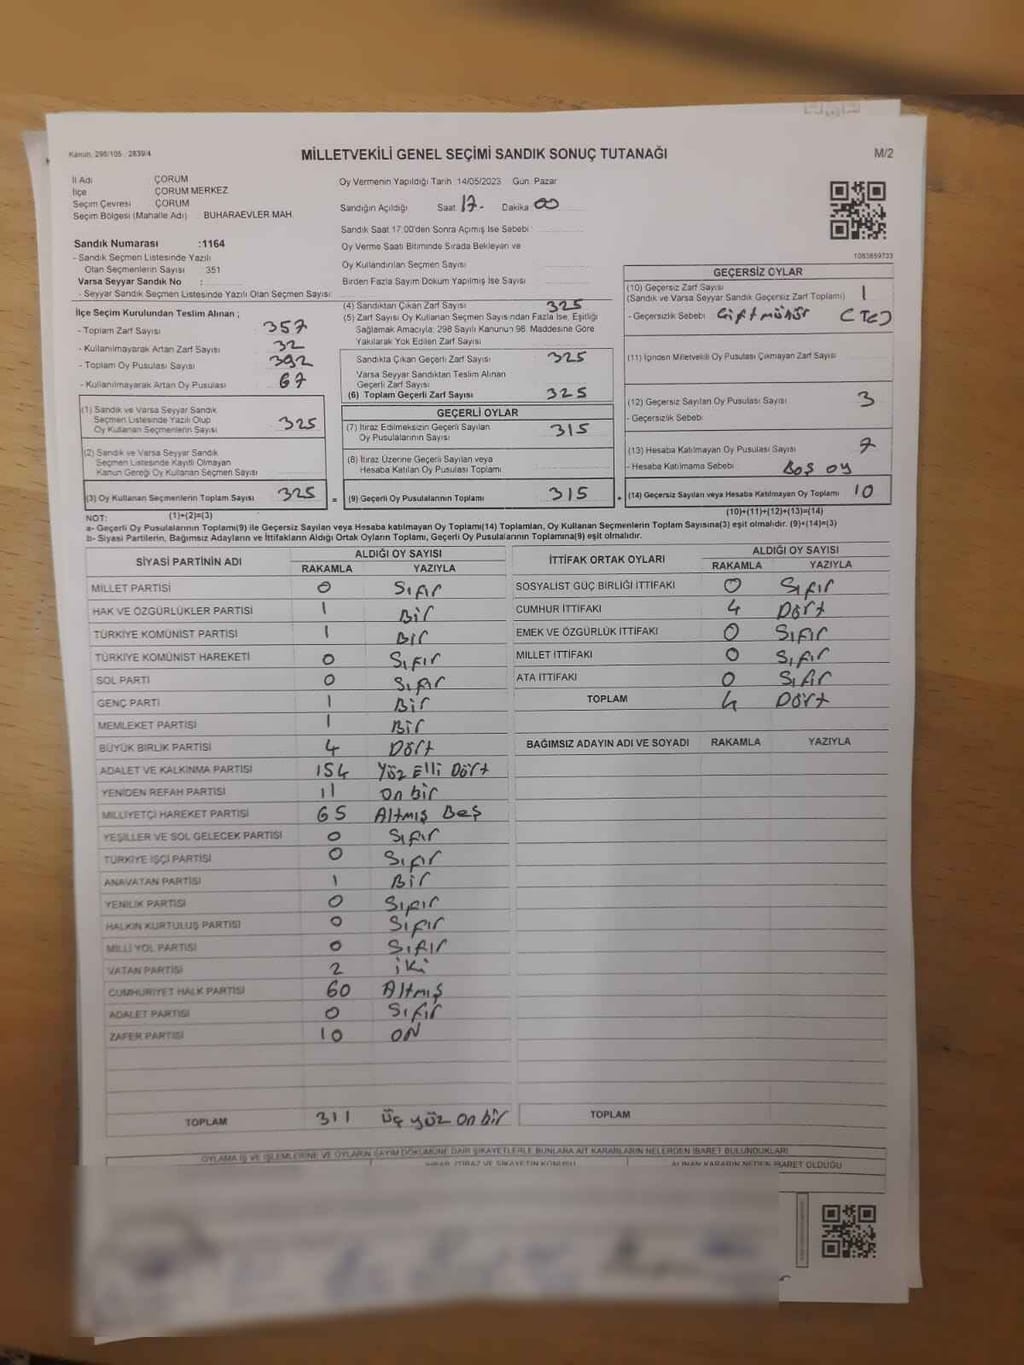 Kanun: 298/105 2839/4
MİLLETVEKİLİ GENEL SEÇİMİ SANDIK SONUÇ TUTANAĞI
M/2
İl Adı ÇORUM
İlçe ÇORUM MERKEZ
Seçim Çevresi ÇORUM
Seçim Bölgesi (Mahalle Adı) BUHARAEVLER MAH.
Oy Vermenin Yapıldığı Tarih 14/05/2023 Gün: Pazar
Sandığın Açıldığı Saat 17- Dakika 00
Sandık Saat 17:00'den Sonra Açımış İse Sebebi
Oy Verme Saati Bitiminde Sırada Bekleyen ve
Oy Kullandırılan Seçmen Sayısı
Birden Fazla Sayım Döküm Yapılmış İse Sayısı
1083859733
Sandık Numarası :1164
- Sandık Seçmen Listesinde Yazılı
Olan Seçmenlerin Sayısı 351
Varsa Seyyar Sandık No :
- Seyyar Sandık Seçmen Listesinde Yazılı Olan Seçmen Sayısı
İlçe Seçim Kurulundan Teslim Alınan ;
- Toplam Zarf Sayısı 357
- Kullanılmayarak Artan Zarf Sayısı 32
- Toplam Oy Pusulası Sayısı 392
- Kullanılmayarak Artan Oy Pusulası 67
(1) Sandık ve Varsa Seyyar Sandık
Seçmen Listesinde Yazılı Olup
Oy Kullanan Seçmenlerin Sayısı 325
(2) Sandık ve Varsa Seyyar Sandık
Seçmen Listesinde Kayıtlı Olmayan
Kanun Gereği Oy Kullanan Seçmen Sayısı
(3) Oy Kullanan Seçmenlerin Toplam Sayısı 325
(1)+(2)=(3)
(4) Sandıktan Çıkan Zarf Sayısı 325
(5) Zarf Sayısı Oy Kullanan Seçmen Sayısından Fazla İse, Eşitliği
Sağlamak Amacıyla; 298 Sayılı Kanunun 98. Maddesine Göre
Yakılarak Yok Edilen Zarf Sayısı
Sandıkta Çıkan Geçerli Zarf Sayısı 325
Varsa Seyyar Sandıktan Teslim Alınan
Geçerli Zarf Sayısı
(6) Toplam Geçerli Zarf Sayısı 325
GEÇERLİ OYLAR
(7) İtiraz Edilmeksizin Geçerli Sayılan
Oy Pusulalarının Sayısı 315
(8) İtiraz Üzerine Geçerli Sayılan veya
Hesaba Katılan Oy Pusulası Toplamı
= (9) Geçerli Oy Pusulalarının Toplamı 315
GEÇERSİZ OYLAR
(10) Geçersiz Zarf Sayısı
(Sandık ve Varsa Seyyar Sandık Geçersiz Zarf Toplamı) 1
- Geçersizlik Sebebi Çift mühür
(11) İçinden Milletvekili Oy Pusulası Çıkmayan Zarf Sayısı
(12) Geçersiz Sayılan Oy Pusulası Sayısı 3
- Geçersizlik Sebebi
(13) Hesaba Katılmayan Oy Pusulası Sayısı 7
- Hesaba Katılmama Sebebi Boş oy
+ (14) Geçersiz Sayılan veya Hesaba Katılmayan Oy Toplamı 10
(10)+(11)+(12)+(13)=(14)
NOT:
a- Geçerli Oy Pusulalarının Toplamı(9) ile Geçersiz Sayılan veya Hesaba katılmayan Oy Toplamı(14) Toplamları, Oy Kullanan Seçmenlerin Toplam Sayısına(3) eşit olmalıdır. (9)+(14)=(3)
b- Siyasi Partilerin, Bağımsız Adayların ve İttifakların Aldığı Ortak Oyların Toplamı, Geçerli Oy Pusulalarının Toplamına(9) eşit olmalıdır.
SİYASİ PARTİNİN ADI ALDIĞI OY SAYISI
RAKAMLA YAZIYLA
MİLLET PARTİSİ 0 Sıfır
HAK VE ÖZGÜRLÜKLER PARTİSİ 1 Bir
TÜRKİYE KOMÜNİST PARTİSİ 1 Bir
TÜRKİYE KOMÜNİST HAREKETİ 0 Sıfır
SOL PARTİ 0 Sıfır
GENÇ PARTİ 1 Bir
MEMLEKET PARTİSİ 1 Bir
BÜYÜK BİRLİK PARTİSİ 4 Dört
ADALET VE KALKINMA PARTİSİ 154 Yüz Elli Dört
YENİDEN REFAH PARTİSİ 11 On bir
MİLLİYETÇİ HAREKET PARTİSİ 65 Altmış Beş
YEŞİLLER VE SOL GELECEK PARTİSİ 0 Sıfır
TÜRKİYE İŞÇİ PARTİSİ 0 Sıfır
ANAVATAN PARTİSİ 1 Bir
YENİLİK PARTİSİ 0 Sıfır
HALKIN KURTULUŞ PARTİSİ 0 Sıfır
MİLLİ YOL PARTİSİ 0 Sıfır
VATAN PARTİSİ 2 iki
CUMHURİYET HALK PARTİSİ 60 Altmış
ADALET PARTİSİ 0 Sıfır
ZAFER PARTİSİ 10 ON
TOPLAM 311 Üç yüz On bir
İTTİFAK ORTAK OYLARI ALDIĞI OY SAYISI
RAKAMLA YAZIYLA
SOSYALİST GÜÇ BİRLİĞİ İTTİFAKI 0 Sıfır
CUMHUR İTTİFAKI 4 Dört
EMEK VE ÖZGÜRLÜK İTTİFAKI 0 Sıfır
MİLLET İTTİFAKI 0 Sıfır
ATA İTTİFAKI 0 Sıfır
TOPLAM 4 Dört
BAĞIMSIZ ADAYIN ADI VE SOYADI RAKAMLA YAZIYLA
TOPLAM
OYLAMA İŞ VE İŞLEMLERİNE VE OYLARIN SAYIM DÖKÜMÜNE DAİR ŞİKAYETLERLE BUNLARA AİT KARARLARIN NELERDEN İBARET BULUNDUKLARI
İHBAR, İTİRAZ VE ŞİKAYETİN KONUSU ALINAN KARARIN NEDEN İBARET OLDUĞU